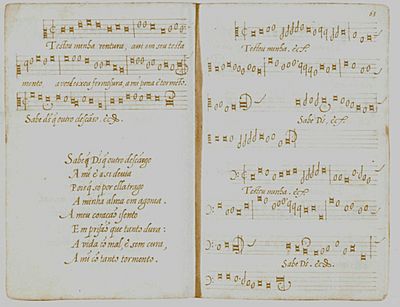 Testou minha ventura, am em seu testa
mento a vos deixou fermosura, a mi pena e tormēto.
Sabe di q̃ outro descãso. &c.
Sabeq̃ Di q̃ outro descango
A mi é a si devia
Poisq̃ so por ella trago
A minha alma em agonea.
A meu coraçaõ isento
Em prisaõ que tanto dura:
A vida só mal, é sem cura,
A mi có tanto tormento.
63
Testou minha. &c.
Sabe Di. &c.
Testou minha. &c.
Sabe Di. &c.